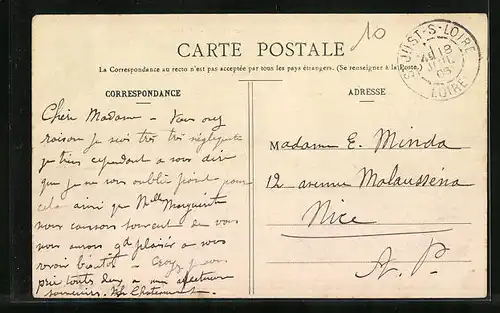 10
CARTE POSTALE
La Correspondance au recto n'est pas acceptée par tous les pays étrangers. (Se renseigner à la Poste.)
ST JUST-S-LOIRE
18
JUIL
05
LOIRE
CORRESPONDANCE
Cher Madame – Vous avez
raison je suis très très négligente
je tiens cependant a vous dire
que je ne vous oublie point pour
cela ainsi que Mlle Marguerite
nous causons souvent de vous
nous aurons gd plaisir a vous
revoir bientôt – Croyez je vous
prie toutes deux a mes affectueux
souvenirs.
ADRESSE
Madame E. Minda
12 avenue Malausséna
Nice
A. P.